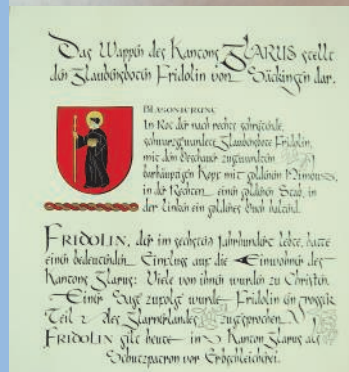 Das Wappen des Kantons GLARUS stellt
den Glaubensboten Fridolin von Säckingen dar.
BLASONIERUNG
In Rot der nach rechts schreitende,
schwarzgewandete Glaubensbote Fridolin,
mit dem Beschauer zugewandtem
barhäuptigen Kopf mit goldenem Nimbus,
in der Rechten einen goldenen Stab, in
der Linken ein goldenes Buch haltend.
FRIDOLIN, der im sechsten Jahrhundert lebte, hatte
einen bedeutenden Einfluss auf die Einwohner des
Kantons Glarus: Viele von ihnen wurden zu Christen.
Einer Sage zufolge wurde Fridolin ein
Teil des Glarnerlandes zugesprochen.
FRIDOLIN gilt heute im Kanton Glarus als
Schutzpatron vor Erbschleicherei.